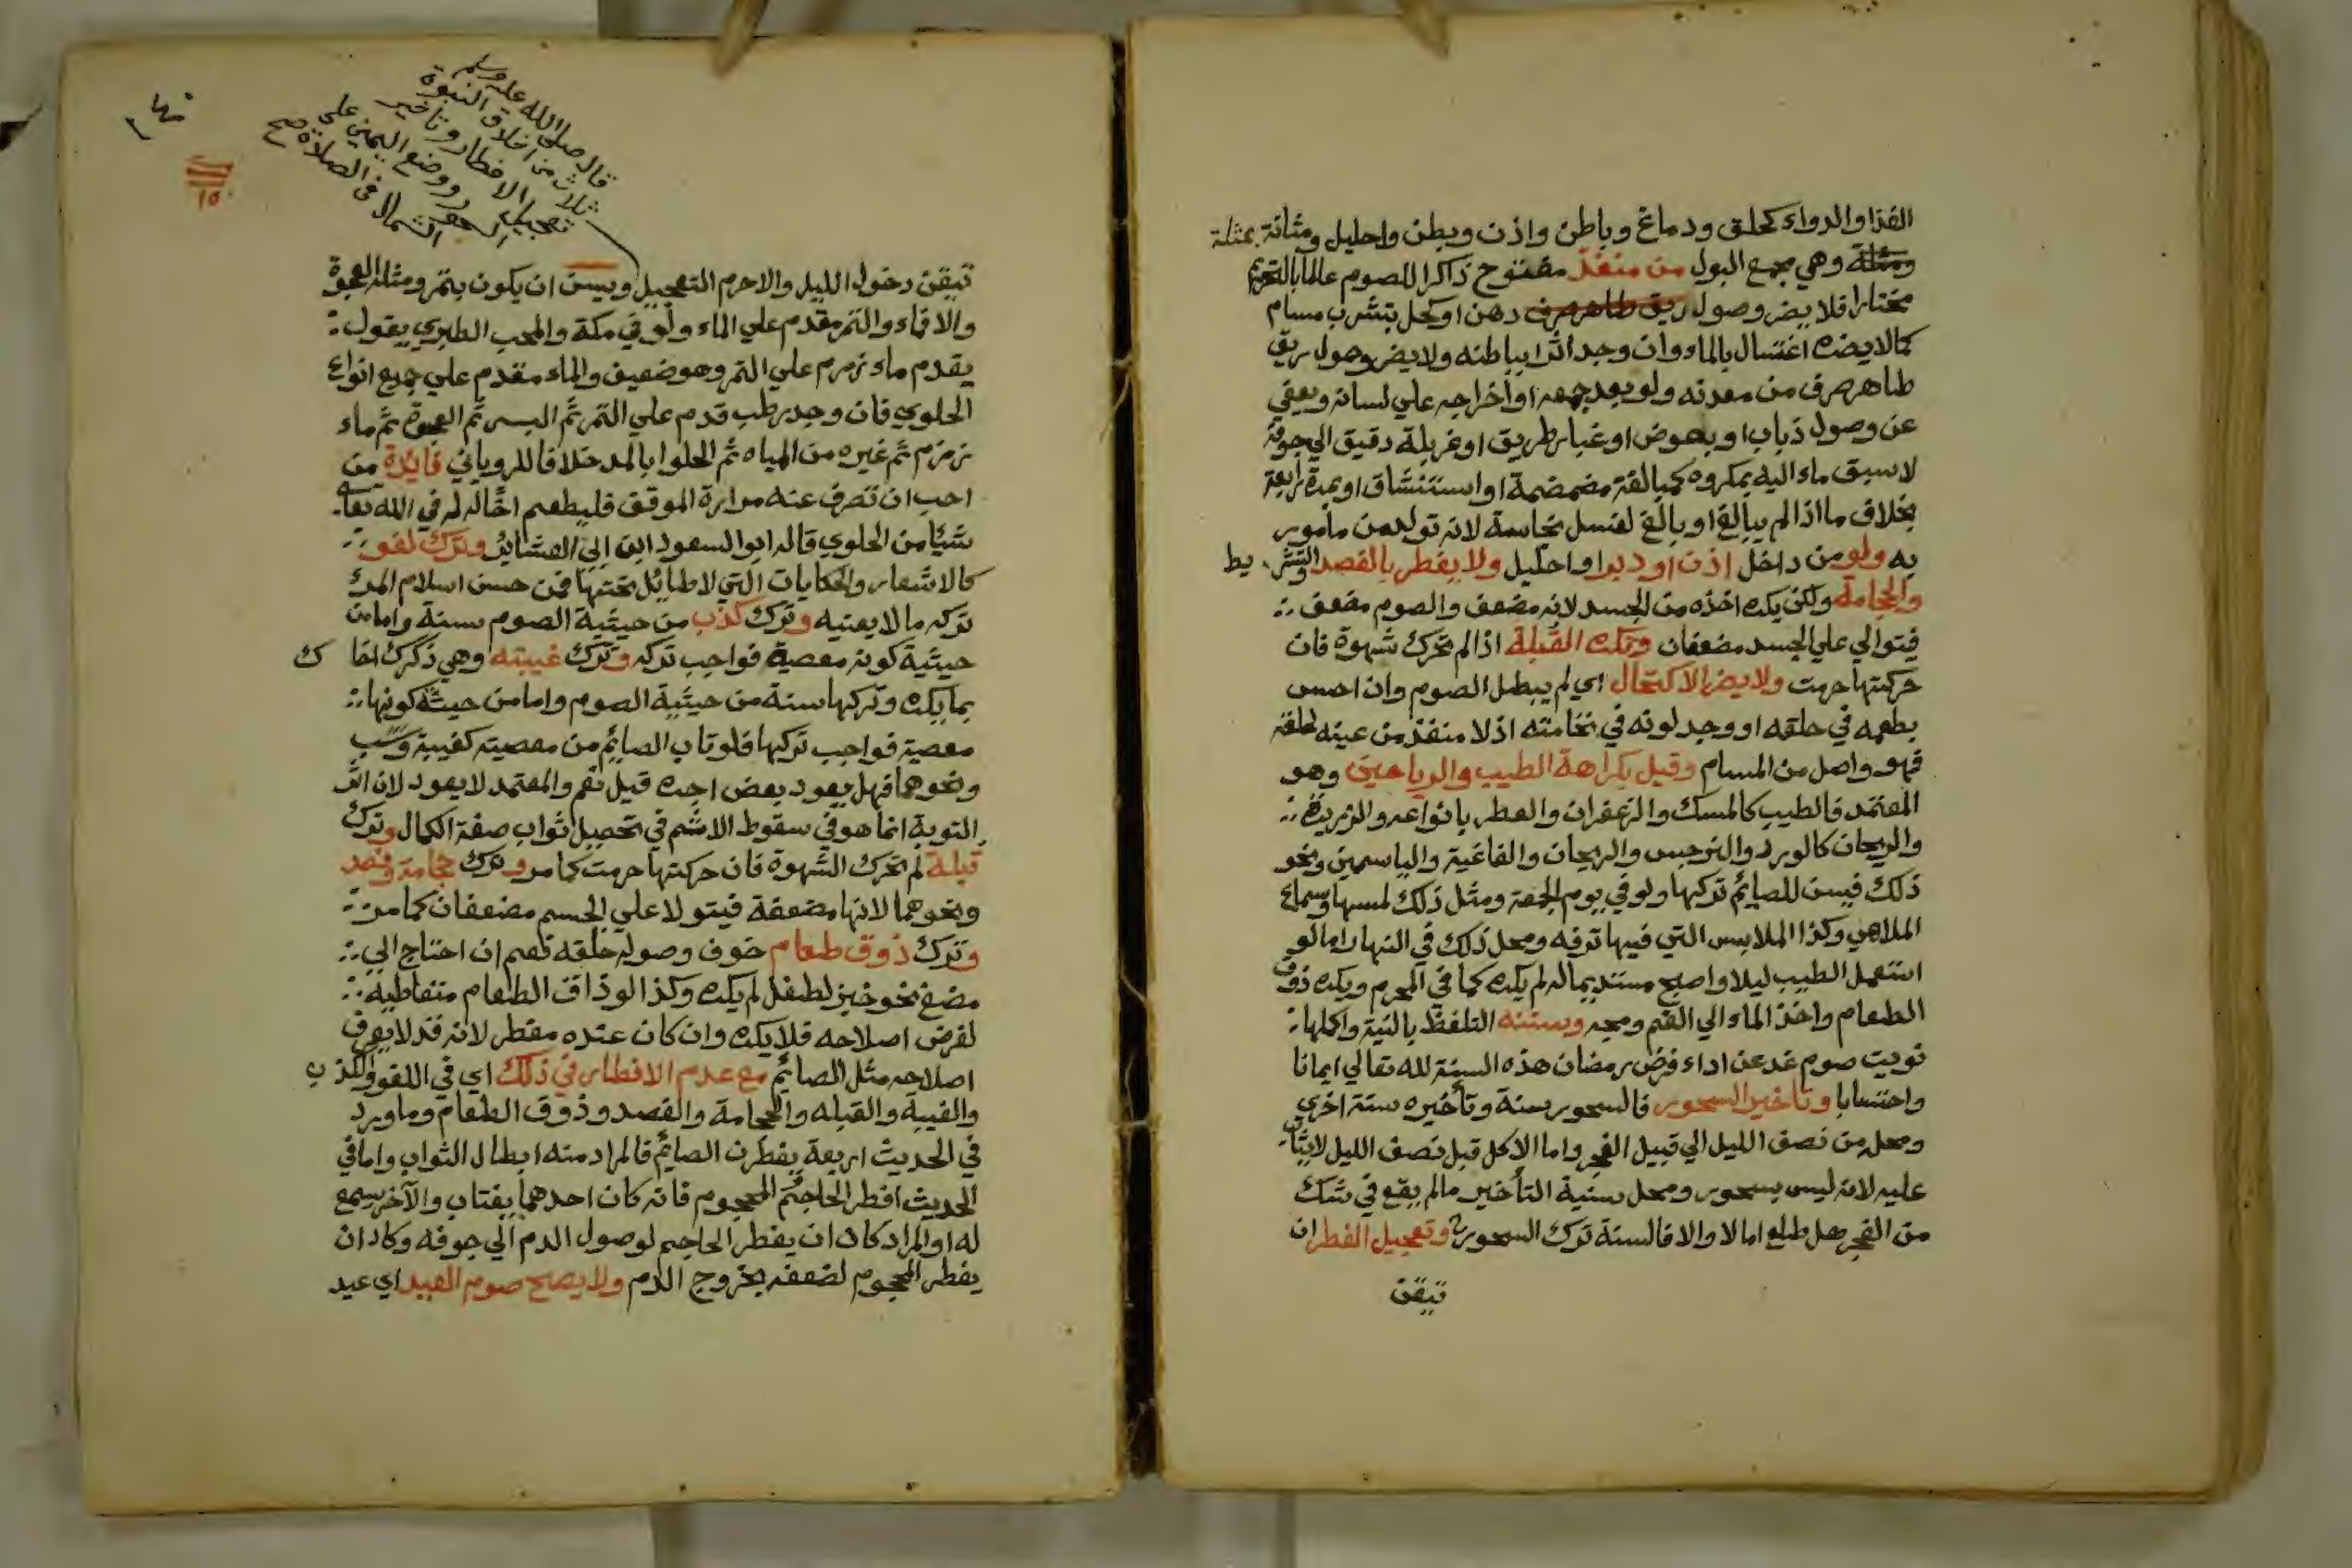 الغذا والدواء كحلق ودماغ وباطن واذن وبطن واحليل ومثانة بمثلة
ومثلثة وهي مجمع البول من منفذ مفتوح ذاكرا للصوم عالما بالتحريم
مختارا فلا يضر وصول ريق طاهر صرف دهن او كحل بتشرب مسام
كما لا يضره اغتسال بالماء وان وجد اثرا بباطنه ولا يضر وصول ريق
طاهر صرف من معدنه ولو بعد جمعه او اخراجه علي لسانه ويعفي
عن وصول ذباب او بعوض او غبار طريق او غربلة دقيق الي جوفه
لا سبق ماء اليه بمكروه كمبالغة مضمضة او استنشاق او بمرة رابعة
بخلاف ما اذا لم يبالغ او بالغ لغسل نجاسة لانه تولد من مامور
به ولو من داخل اذن او دبر او احليل ولا يفطر بالفصد والتشريط
والحجامة ولكن يكره اخذه من الجسد لانه مضعف والصوم مضعف
فيتوالي علي الجسد مضعفان وتكره القبلة اذا لم تحرك شهوة فان
حركتها حرمت ولا يضر الاكتحال اي لم يبطل الصوم وان احس
بطعمه في حلقه او وجد لونه في نخامته اذ لا منفذ من عينه لحلقه
فهو واصل من المسام وقيل بكراهة الطيب والرياحين وهو
المعتمد فالطيب كالمسك والزعفران والعطر بانواعه والزبريده
والريحان كالورد والنرجس والريحان والفاغية والياسمين ونحو
ذلك فيسن للصائم تركها ولو في يوم الجمعة ومثل ذلك لمسها وسماع
الملاهي وكذا الملابس التي فيها ترفه ومحل ذلك في النهار اما لو
استعمل الطيب ليلا واصبح مستديما له لم يكره كما في المحرم ويكره ذوق
الطعام واخذ الماء الي الفم ومجه وسننه التلفظ بالنية واكملها
نويت صوم غد عن اداء فرض رمضان هذه السنة لله تعالي ايمانا
واحتسابا وتاخير السحور فالسحور سنة وتأخيره سنة اخري
ومحله من نصف الليل الي قبيل الفجر واما الاكل قبل نصف الليل لا يثاب
عليه لانه ليس بسحور ومحل سنية التأخير ما لم يقع في شك
من الفجر هل طلع اما لا والا فالسنة ترك السحور وتعجيل الفطر ان
تيقن
قال صلى الله عليه وسلم
ثلاث من اخلاق النبوة
تعجيل الافطار وتاخير
السحور ووضع اليمين علي
الشمال في الصلاة صح
١٥
تيقن دخول الليل والا حرم التعجيل ويسن ان يكون بتمر ومثله العجوة
والاقماء والتمر مقدم علي الماء ولو في مكة والمحب الطبري يقول
يقدم ماء زمزم علي التمر وهو ضعيف والماء مقدم علي جميع انواع
الحلوي فان وجد رطب قدم علي التمر ثم البسر ثم العجوة ثم ماء
زمزم ثم غيره من المياه ثم الحلوا بالمد خلافا للروياني فايدة من
احب ان تصرف عنه مرارة الموقف فليطعم اخا له في الله تعالى
شيا من الحلوي قاله ابو السعود ابن ابي العشاير وترك لغو
كالاشعار والحكايات التي لا طايل تحتها فمن حسن اسلام المرء
تركه ما لا يعنيه وترك كذب من حيثية الصوم سنة واما من
حيثية كونه معصية فواجب تركه وترك غيبته وهي ذكرك اخاك
بما يكره وتركها سنة من حيثية الصوم واما من حيثية كونها
معصية فواجب تركها فلو تاب الصائم من معصيته كغيبة وسب
ونحوهما فهل يعود بعض اجره قيل نعم والمعتمد لا يعود لان اثر
التوبة انما هو في سقوط الاثم في تحصيل ثواب صفة الكمال وترك
قبلة لم تحرك الشهوة فان حركتها حرمت كما مر وترك حجامة وفصد
ونحوهما لانها مضعفة فيتولا علي الجسم مضعفان كما مر
وترك ذوق طعام خوف وصوله حلقه نعم ان احتاج الي
مضغ نحو خبز لطفل لم يكره وكذا لو ذاق الطعام متعاطيه
لغرض اصلاحه فلا يكره وان كان عنده مفطر لانه قد لا يعرف
اصلاحه مثل الصائم مع عدم الافطار في ذلك اي في اللغو والكذب
والغيبة والقبله والحجامة والفصد وذوق الطعام وما ورد
في الحديث اربعة يفطرن الصائم فالمراد منه ابطال الثواب واما في
الحديث افطر الحاجم المحجوم فانه كان احدهما يغتاب والآخر يسمع
له او المراد كاد ان يفطر الحاجم لوصول الدم الي جوفه وكاد ان
يفطر المحجوم لضعفه بخروج الدم ولا يصح صوم العيد اي عيد